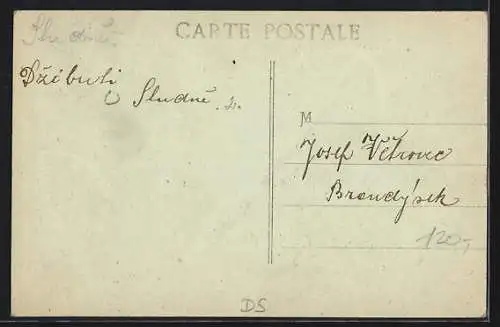 CARTE POSTALE
Studně
Džibuti
Studně
M
Josef Větrovec
Brandýsek
120,-
DS